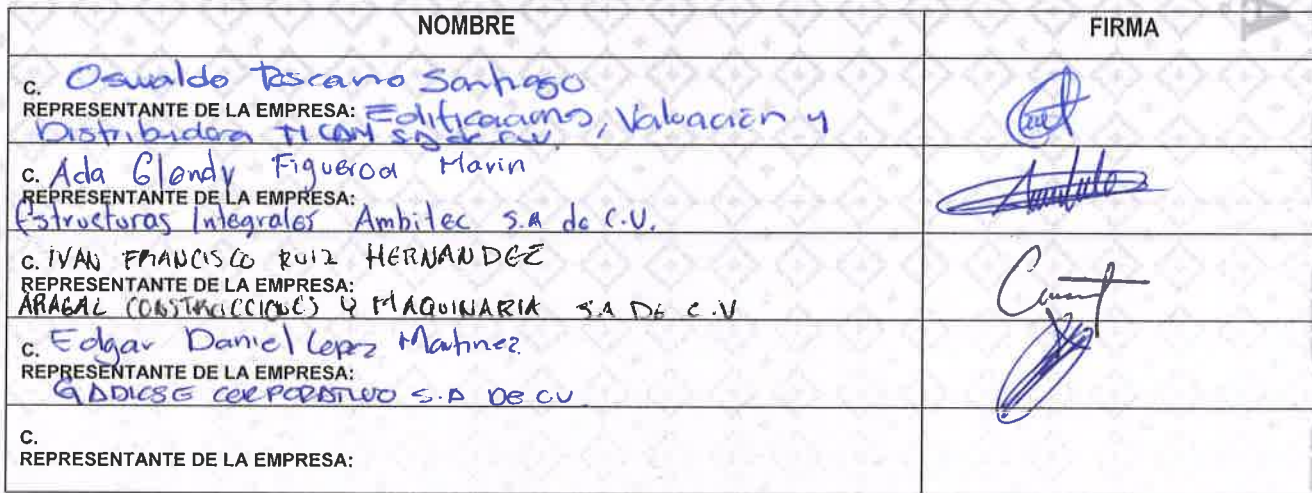 NOMBRE FIRMA
C. Oswaldo Toscano Santiago
REPRESENTANTE DE LA EMPRESA: Edificaciones, Valuación y
Distribuidora TICAM S.A de C.V.
C. Ada Glendy Figueroa Marin
REPRESENTANTE DE LA EMPRESA:
Estructuras Integrales Ambitec S.A de C.V.
C. IVAN FRANCISCO RUIZ HERNANDEZ
REPRESENTANTE DE LA EMPRESA:
ARAGAL CONSTRUCCIONES Y MAQUINARIA S.A DE C.V
C. Edgar Daniel Lopez Martinez
REPRESENTANTE DE LA EMPRESA:
GADICSE CORPORATIVO S.A DE CV
C.
REPRESENTANTE DE LA EMPRESA: